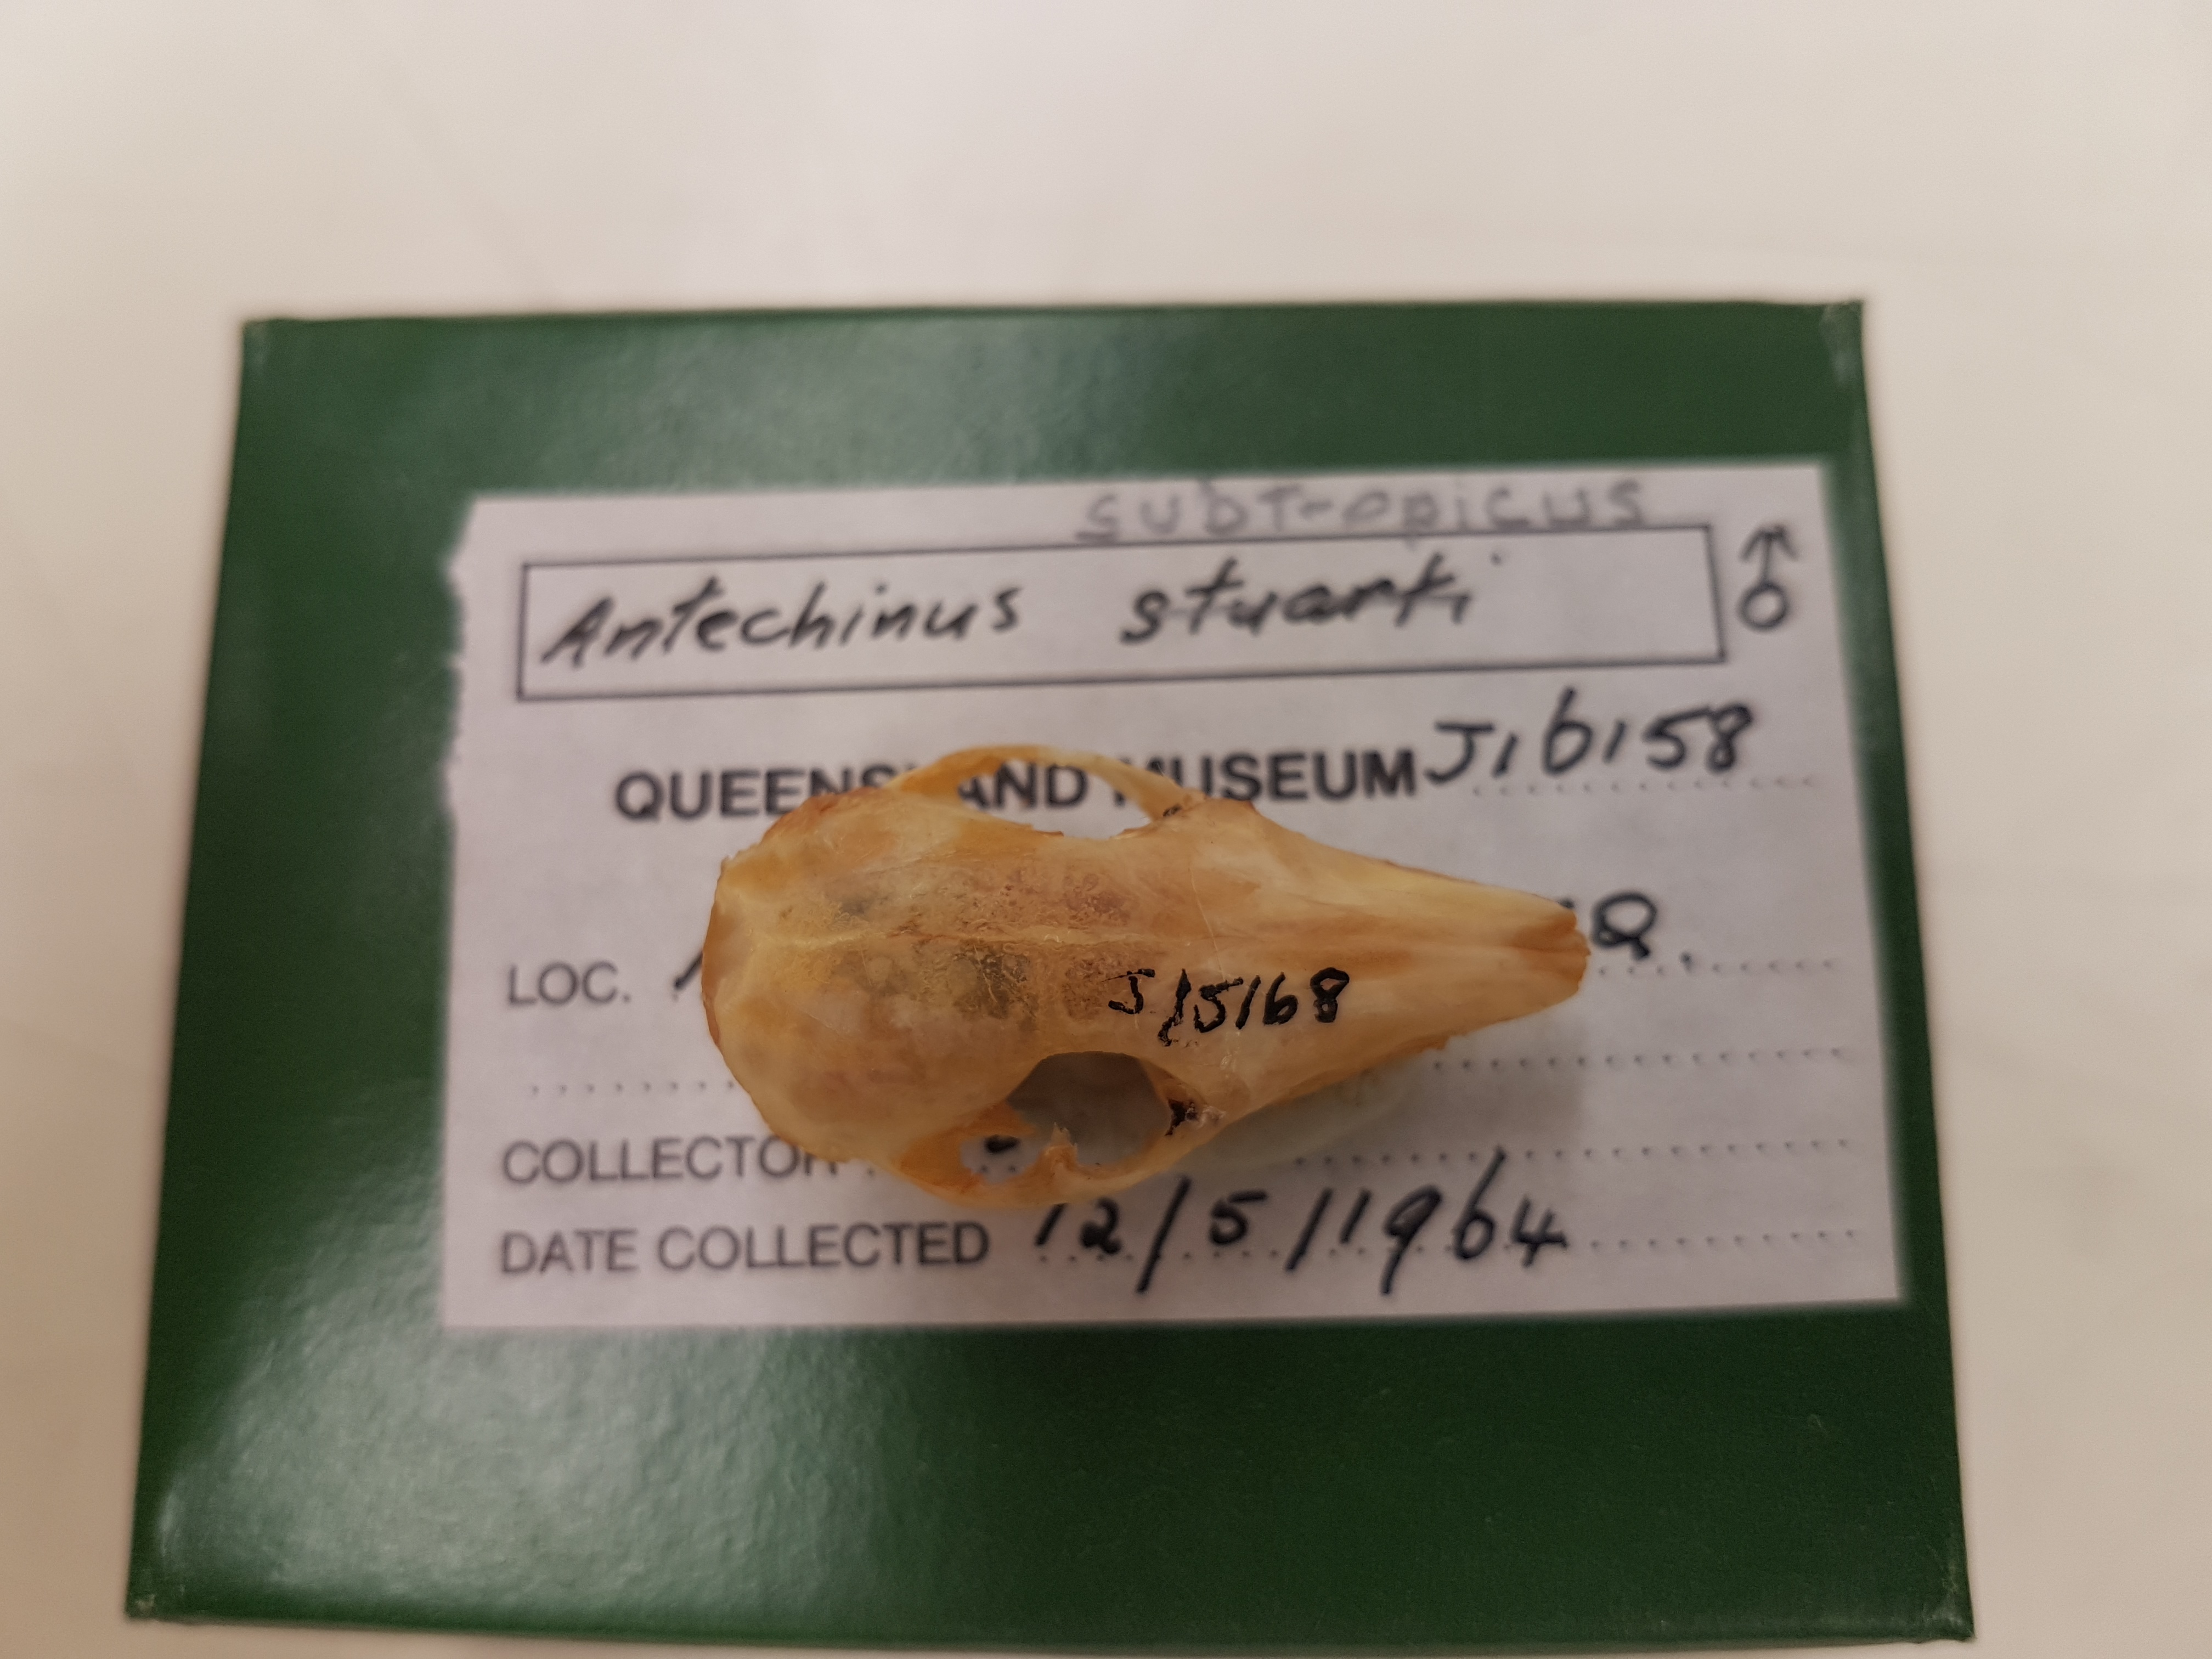 subtropicus
Antechinus stuarti ♂
QUEENSLAND MUSEUM J16158
LOC. Q.
COLLECTOR
DATE COLLECTED 12/5/1964
J15168